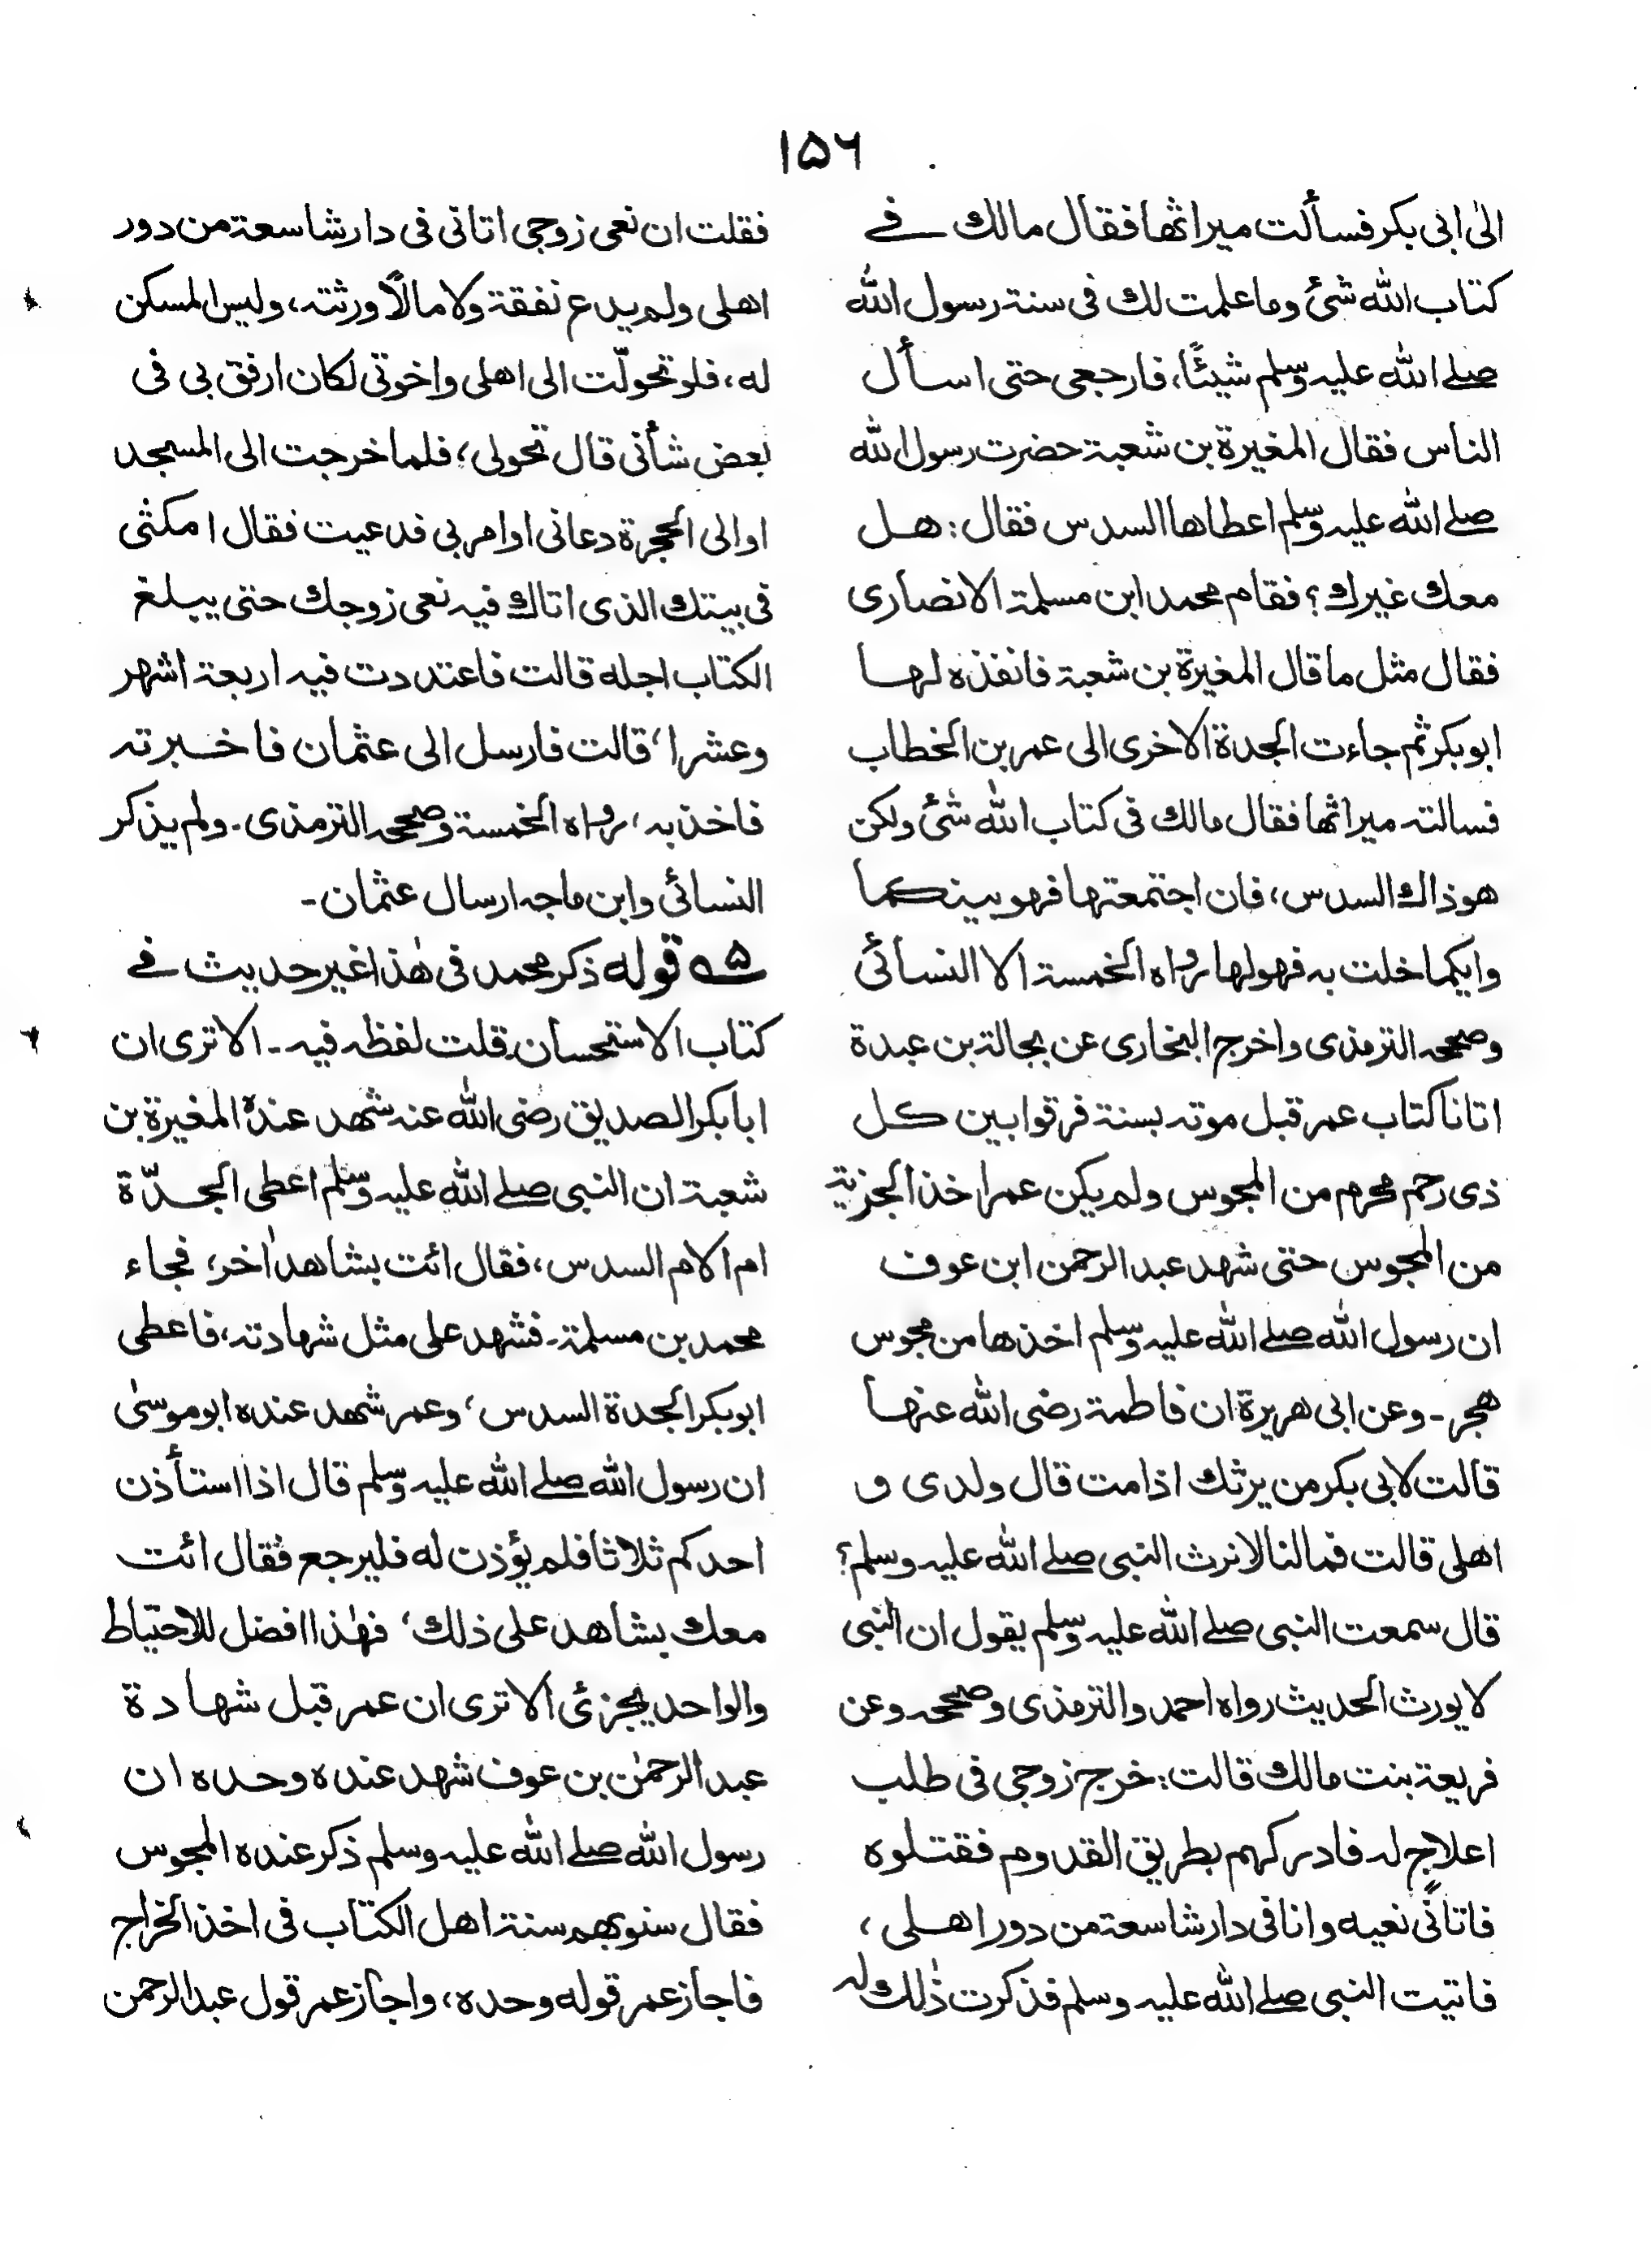 ١٥٦
الىٰ ابى بكر فسألت ميراثها فقال مالك فے
كتاب الله شئ وما علمت لك فى سنة رسول الله
صلے الله عليه وسلم شيئًا، فارجعى حتى اسأل
الناس فقال المغيرة بن شعبة حضرت رسول الله
صلے الله عليه وسلم اعطاها السدس فقال: هل
معك غيرك؟ فقام محمد ابن مسلمة الانصارى
فقال مثل ما قال المغيرة بن شعبة فانفذه لها
ابو بكر ثم جاءت الجدة الاخرى الى عمر بن الخطاب
فسالته ميراثها فقال مالك فى كتاب الله شئ ولكن
هو ذاك السدس، فان اجتمعتها فهو بينكما
وايكما خلت به فهو لها رواه الخمسة الا النسائى
وصححه الترمذى واخرج البخارى عن بجالة بن عبدة
اتانا كتاب عمر قبل موته بسنة فرقوا بين كل
ذى رحم محرم من المجوس ولم يكن عمر اخذ الجزية
من المجوس حتى شهد عبد الرحمن ابن عوف
ان رسول الله صلے الله عليه وسلم اخذها من مجوس
هجر۔ وعن ابى هريرة ان فاطمة رضى الله عنها
قالت لابى بكر من يرثك اذا مت قال ولدى و
اهلى قالت فمالنا لا نرث النبى صلے الله عليه وسلم؟
قال سمعت النبى صلے الله عليه وسلم يقول ان النبى
لا يورث الحديث رواه احمد والترمذى وصححه وعن
فريعة بنت مالك قالت: خرج زوجى فى طلب
اعلاج له فادركهم بطريق القدوم فقتلوه
فاتانى نعيه وانا فى دار شاسعة من دور اهلى،
فاتيت النبى صلے الله عليه وسلم فذكرت ذٰلك له
فقلت ان نعى زوجى اتانى فى دار شاسعة من دور
اهلى ولم يدع نفقة ولا مالًا ورثته، وليس المسكن
له، فلو تحولّت الى اهلى واخوتى لكان ارفق بى فى
بعض شأنى قال تحولى، فلما خرجت الى المسجد
او الى الحجرة دعانى او امر بى فدعيت فقال امكثى
فى بيتك الذى اتاك فيه نعى زوجك حتى يبلغ
الكتاب اجله قالت فاعتددت فيه اربعة اشهر
وعشرا، قالت فارسل الى عثمان فاخبرته
فاخذ به، رواه الخمسة وصححه الترمذى۔ ولم يذكر
النسائى وابن ماجه ارسال عثمان۔
۵ قوله ذكر محمد فى هٰذا غير حديث فے
كتاب الاستحسان۔ قلت لفظه فيه۔ الا ترى ان
ابا بكر الصديق رضى الله عنه شهد عنده المغيرة بن
شعبة ان النبى صلے الله عليه وسلم اعطى الجدّة
ام الام السدس، فقال ائت بشاهد اٰخر، فجاء
محمد بن مسلمة۔ فشهد على مثل شهادته، فاعطى
ابو بكر الجدة السدس، وعمر شهد عنده ابو موسىٰ
ان رسول الله صلے الله عليه وسلم قال اذا استأذن
احدكم ثلاثا فلم يؤذن له فليرجع فقال ائت
معك بشاهد على ذلك، فهٰذا افضل للاحتياط
والواحد يجزئ الا ترى ان عمر قبل شهادة
عبد الرحمٰن بن عوف شهد عنده وحده ان
رسول الله صلے الله عليه وسلم ذكر عنده المجوس
فقال سنوا بهم سنة اهل الكتاب فى اخذ الخراج
فاجاز عمر قوله وحده، واجاز عمر قول عبد الرحمن